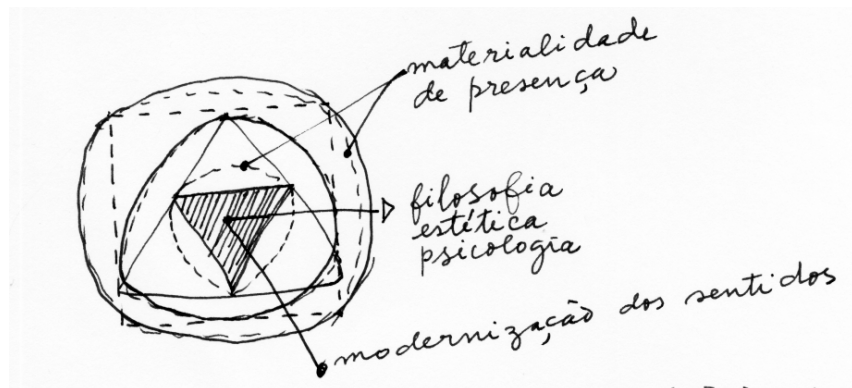 materialidade
de presença
filosofia
estética
psicologia
modernização dos sentidos